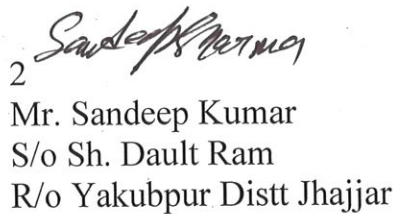 Sandeep Sharma
2
Mr. Sandeep Kumar
S/o Sh. Dault Ram
R/o Yakubpur Distt Jhajjar